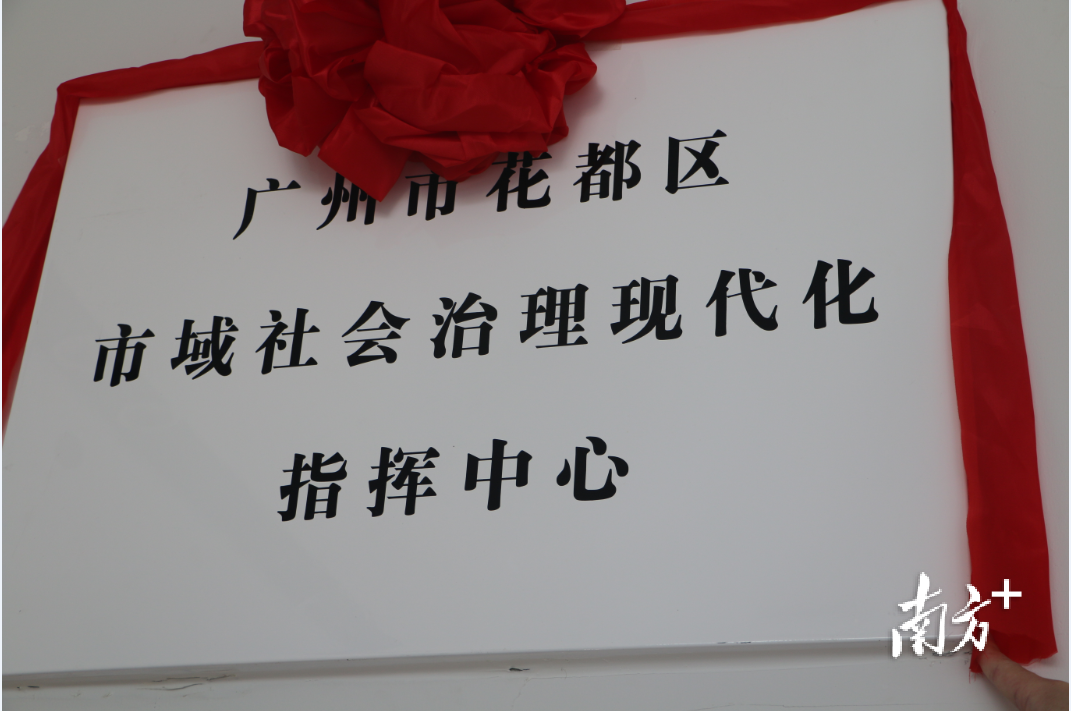 广州市花都区
市域社会治理现代化
指挥中心
南方+